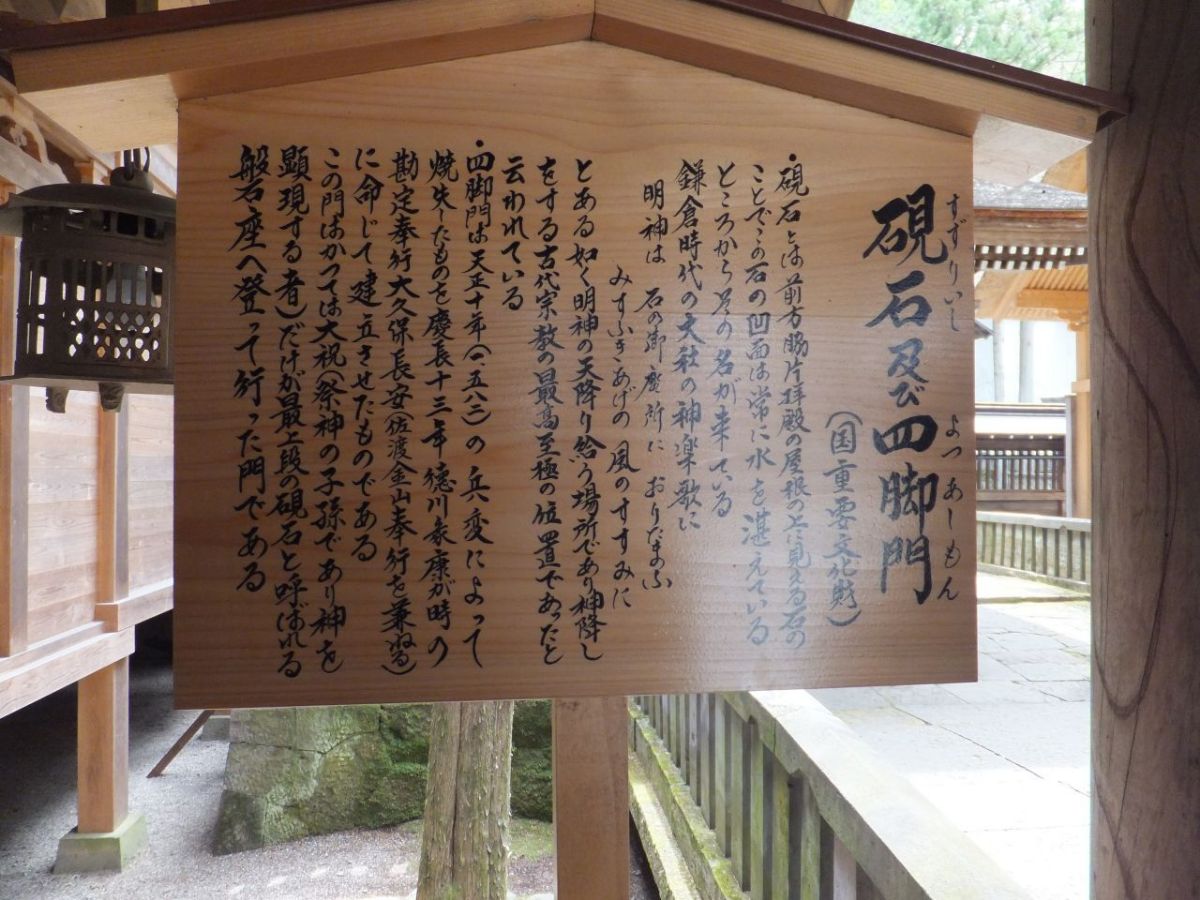 すずりいし よつあしもん
硯石及び四脚門
(国重要文化財)
・硯石とは前方脇片拝殿の屋根の上に見える石の
ことでこの石の凹面は常に水を湛えている
ところからその名が来ている
鎌倉時代の大社の神楽歌に
明神は 石の御座所に おりたまふ
みすふきあげの 風のすすみに
とある如く明神の天降り給う場所であり神降し
をする古代宗教の最高至極の位置であったと
云われている
・四脚門は天正十年(一五八二)の兵変によって
焼失したものを慶長十三年徳川家康が時の
勘定奉行大久保長安(佐渡金山奉行を兼ねる)
に命じて建立させたものである
この門はかつては大祝(祭神の子孫であり神を
顕現する者)だけが最上段の硯石と呼ばれる
磐石座へ登って行った門である